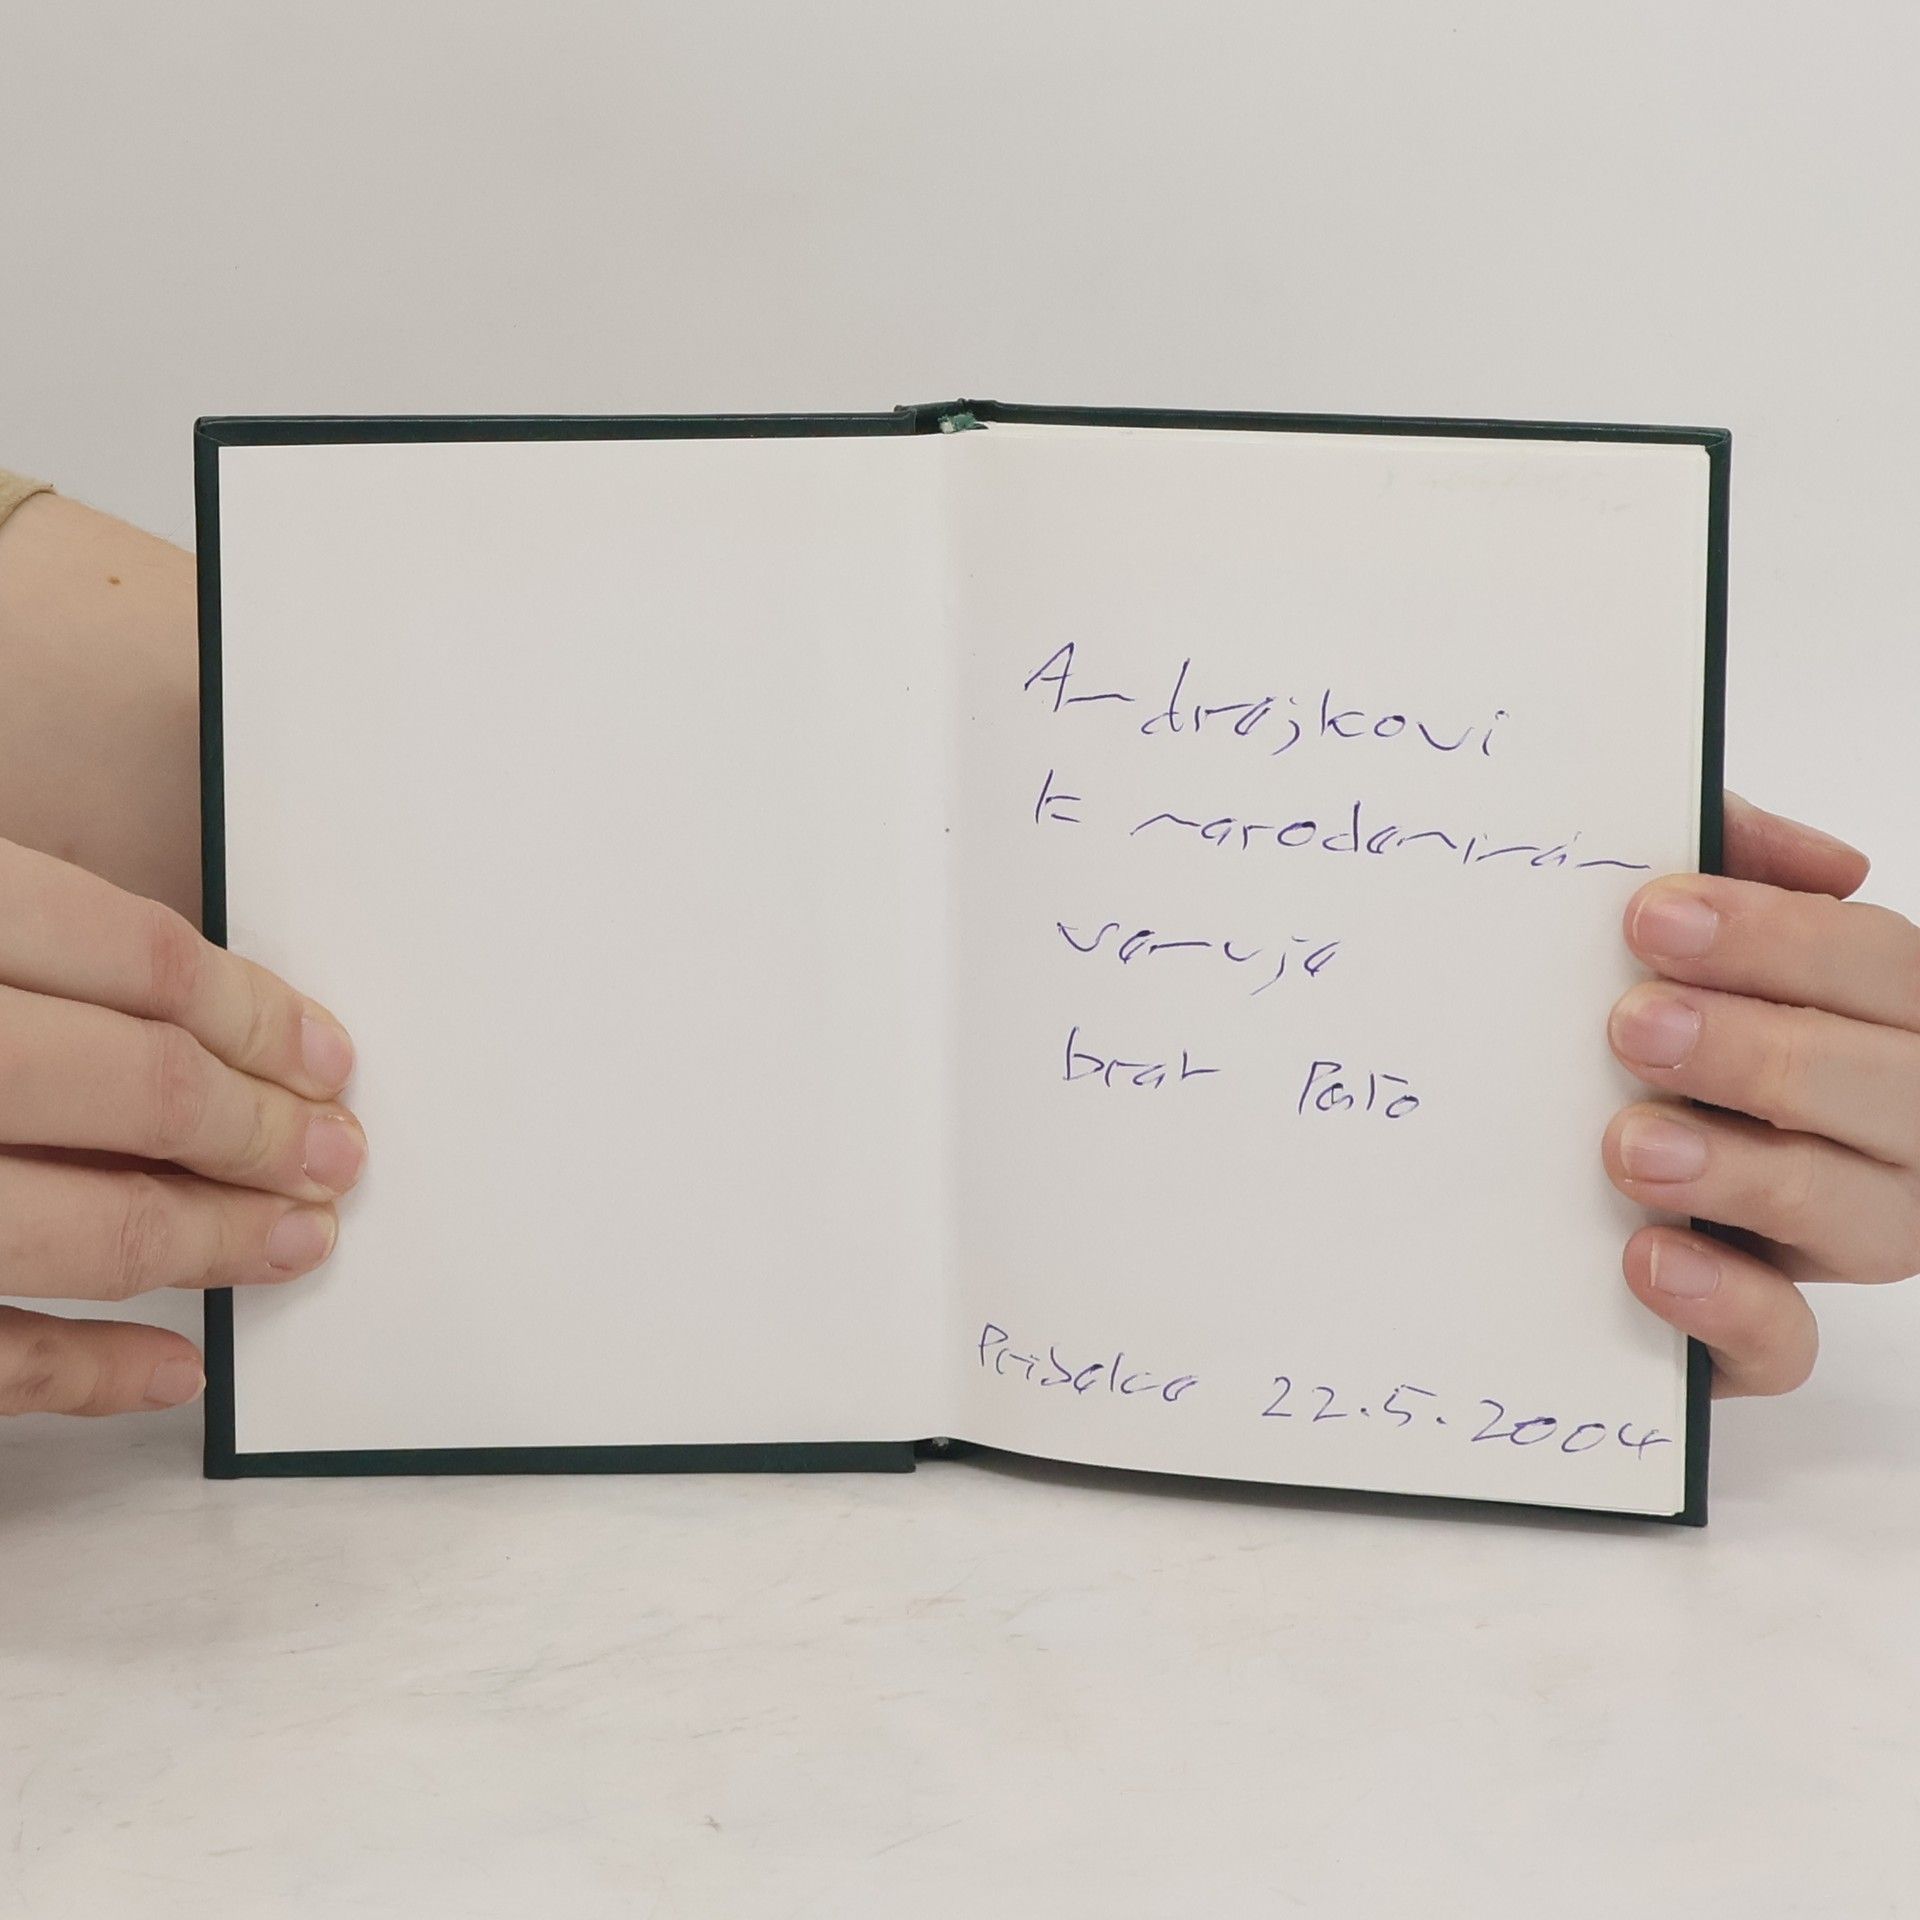 Andrejkovi
k narodeninám
venuje
brat Paťo
Pribelce 22.5.2004